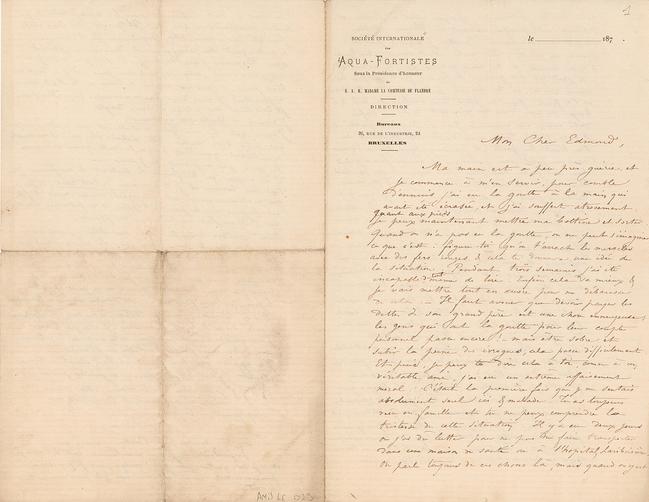 1
SOCIÉTÉ INTERNATIONALE
DES
AQUA-FORTISTES
Sous la Présidence d'honneur
DE
S. A. R. MADAME LA COMTESSE DE FLANDRE
DIRECTION
Bureaux
RUE DE L'INDUSTRIE,
BRUXELLES
le 187 .
Mon Cher Edmond,
Ma main est a peu près guérie et
je commence à m'en servir, pour comble
d'ennuis, j'ai eu la goutte à la main qui
avait été écrasée, et j'ai souffert atrocement.
Quant aux pieds
je peux maintenant mettre ma bottine et sortir
Quand on n'a pas eu la goutte, on ne peut s'imaginer
ce que c'est : figure toi qu'on t'arrache les muscles
avec des fers rouges & cela te donnera une idée de
la situation. Pendant trois semaines j'ai été
incapable de Enfin cela va mieux &
je vais mettre tout en œuvre pour me débarrasser
de cela. Il faut avouer que devoir payer les
dettes de son grand père est une chose ennuyeuse;
les gens qui ont la goutte pour leur compte
personnel passe encore ! mais être sobre et
subir la peine des ivrognes, cela passe difficilement
Et puis, je peux te dire cela à toi, comme à un
véritable ami, j'ai eu un extrême affaissement
moral. C'était la première fois que je me sentais
absolument seul ici & malade. Tu as toujours
vécu en famille et tu ne peux comprendre la
tristesse de cette situation. Il y a eu deux jours
où j'ai dû lutter pour ne pas me faire transporter
dans une maison de santé ou à l'hôpital Lariboisière.
On parle toujours de ces choses là, mais quand on y est